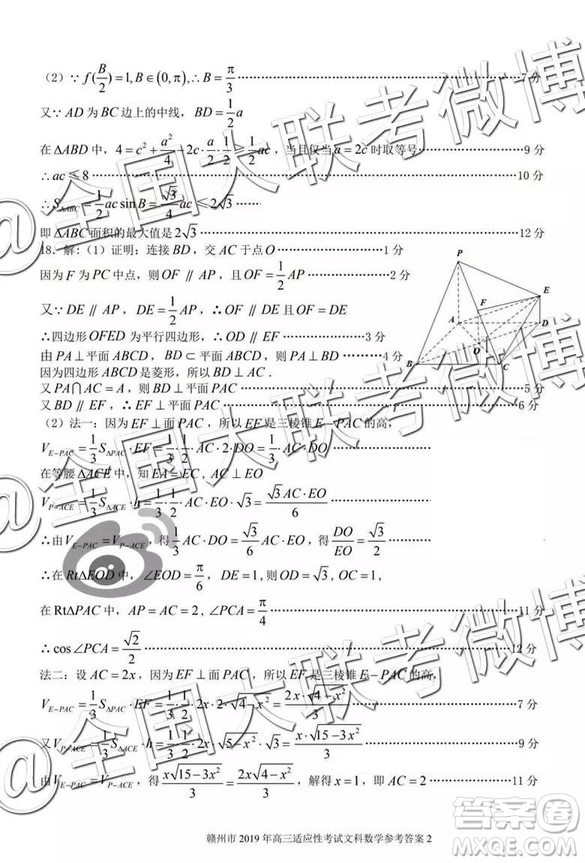 (2) ∵ f(B/2)=1, B∈(0,π), ∴B=π/3 ……7分
又∵ AD为BC边上的中线, BD=1/2 a
在ΔABD中, 4=c²+a²/4-2c·a/2·1/2≥1/2 ac, 当且仅当a=2c时取等号……9分
∴ac≤8……10分
∴S_ΔABC=1/2 ac sin B=√3/4 ac≤2√3……
即ΔABC面积的最大值是2√3……12分
18. 解:(1)证明:连接BD, 交AC于点O……1分
因为F为PC中点, 则OF∥AP, 且OF=1/2 AP……2分
又∵DE∥AP, DE=1/2 AP, ∴OF∥DE且OF=DE
∴四边形OFED为平行四边形, ∴OD∥EF……3分
由PA⊥平面ABCD, BD⊂平面ABCD, 则PA⊥BD……4分
因为四边形ABCD是菱形, 所以BD⊥AC.
又PA∩AC=A, 则BD⊥平面PAC……5分
又BD∥EF, ∴EF⊥平面PAC……6分
P
E
F
A
D
O
B
C
(2)法一:因为EF⊥面PAC, 所以EF是三棱锥E-PAC的高,
V_E-PAC=1/3 S_ΔPAC·EF=1/3·1/2·AC·2·DO=1/3·AC·DO……7分
在等腰ΔACE中, 知EA=EC, AC⊥EO
V_P-ACE=1/3 S_ΔACE·h=1/3·1/2·AC·EO·√3=√3AC·EO/6……
∴由V_E-PAC=V_P-ACE, 得1/3 AC·DO=√3/6 AC·EO, 得DO/EO=√3/2
∴在RtΔEOD中, ∠EOD=π/6, DE=1, 则OD=√3, OC=1
在RtΔPAC中, AP=AC=2, ∠PCA=π/4……11分
∴cos∠PCA=√2/2……12分
法二:设AC=2x, 因为EF⊥面PAC, 所以EF是三棱锥E-PAC的高,
V_E-PAC=1/3 S_ΔPAC·EF=1/3·1/2·2x·2·√4-x²=2x·√4-x²/3……7分
又V_P-ACE=1/3 S_ΔACE·h=1/3·1/2·2x·√5-x²·√3=x·√15-3x²/3……9分
由V_E-PAC=V_P-ACE, 得x√15-3x²/3=2x√4-x²/3, 解得x=1, 即AC=2……11分
赣州市2019年高三适应性考试文科数学参考答案 2
@全国大联考微博
@全国大联考微博
@全国大联考微博
答案圈
MXQE.COM